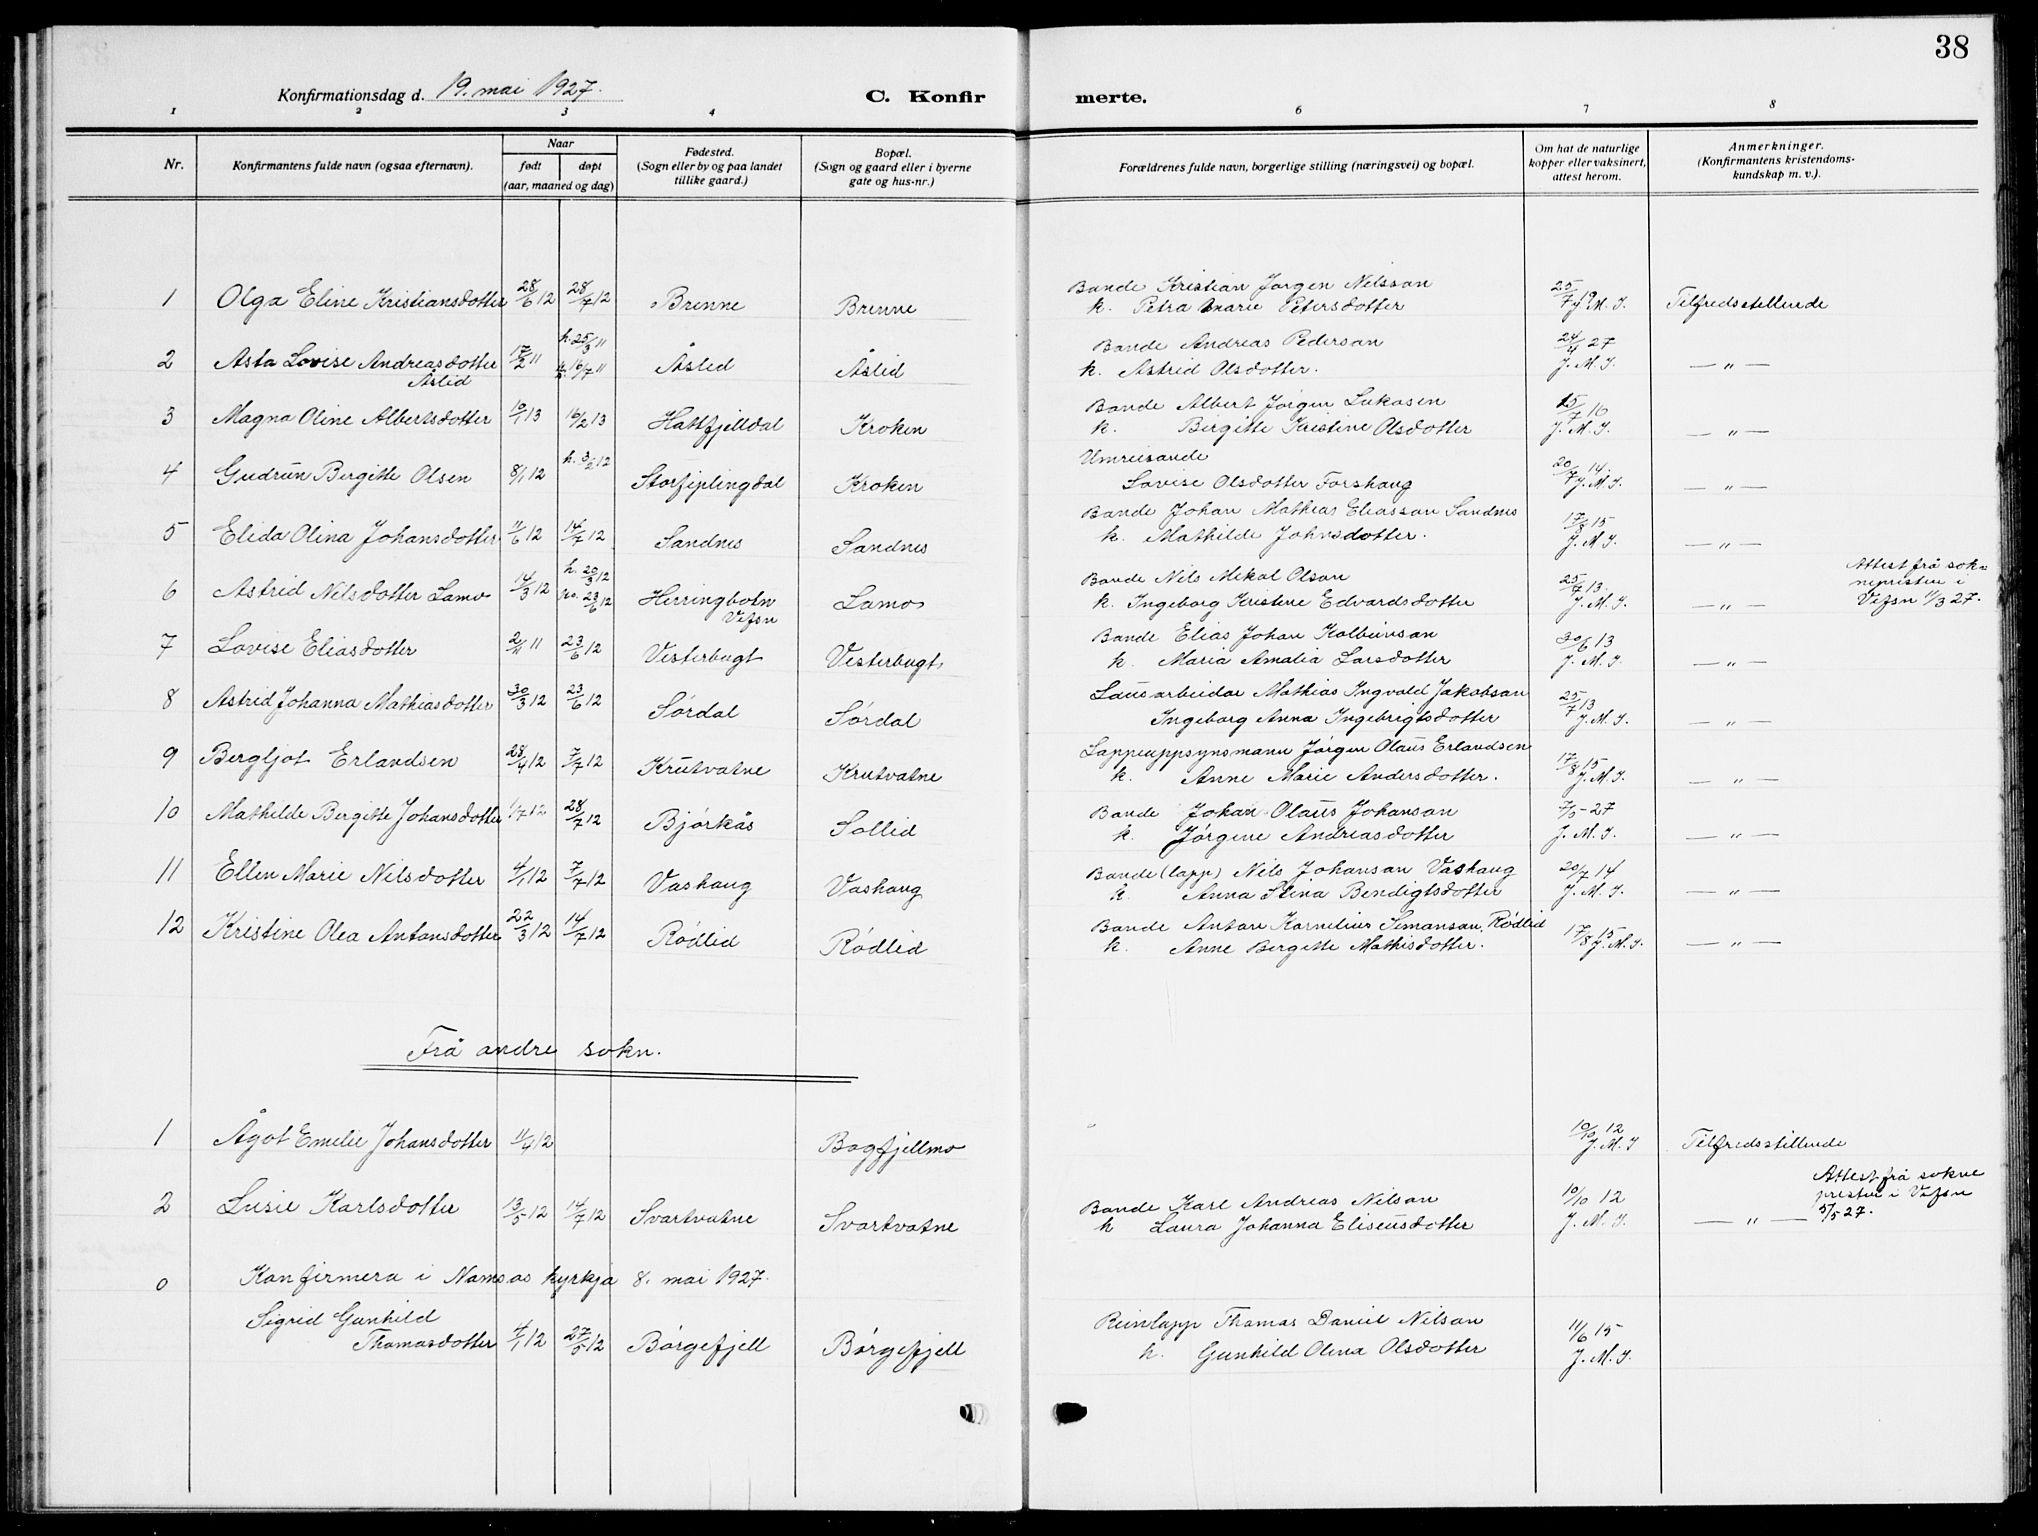 38
Konfirmationsdag d. 19. mai 1927.
C. Konfirmerte.
1 2 3 4 6 7 8
Nr. Konfirmantens fulde navn (ogsaa efternavn). Naar født døpt (aar, maaned og dag) Fødested. (Sogn eller by og paa landet tillike gaard.) Bopæl. (Sogn og gaard eller i byerne gate og hus-nr.) Forældrenes fulde navn, borgerlige stilling (næringsvei) og bopæl. Om hat de naturlige kopper eller vaksinert, attest herom. Anmerkninger. (Konfirmantens kristendomskundskap m. v.).
Bonde Kristian Jørgen Nilsson
1 Olga Eline Kristiansdotter 28/6 12 28/7 12 Brenne Brenne k. Petra Marie Petersdotter 25/7 J. M. J. Tilfredsstillende
h. 25/3 11 Bonde Andreas Pederson 24/4 27
2 Asta Lovise Andreasdotter 17/2 11 16/7 11 Åslid Åslid k. Astrid Olsdotter. J. M. J. — " —
Åslid
Bonde Albert Jørgen Lukasen 15/7 16
3 Magna Oline Albertsdotter 10/1 13 16/2 13 Hattfjelldal Kroken k. Birgitte Kristine Olsdotter J. M. J. — " —
h. 3/2 12 Umreisande 20/7 14.
4 Gudrun Bergitte Olsen 8/1 12 Storfiplingdal Kroken Lovise Olsdotter Forshaug J. M. J. — " —
Bonde Johan Mathias Eliasson Sandnes 17/8 15
5 Elida Olina Johansdotter 11/6 12 14/7 12 Sandnes Sandnes k. Mathilde Johnsdotter. J. M. J. — " —
h. 20/3 12 Bonde Nils Mikal Olson 25/7 13. Attest frå soknepresten i
6 Astrid Nilsdotter Lamo 14/3 12 23/6 12 Herringbotn Vefsn Lamo k. Ingeborg Kristine Edvardsdotter J. M. J. — " — Vefsn 11/3 27.
Bonde Elias Johan Kolbeinson 30/6 13
7 Lovise Eliasdotter 2/11 11 23/6 12 Vesterbugt Vesterbugt k. Maria Amalia Larsdotter J. M. J. — " —
Lausarbeidar Mathias Ingvald Jakobson 25/7 13
8 Astrid Johanna Mathiasdotter 30/3 12 23/6 12 Sørdal Sørdal Ingeborg Anna Ingebrigtsdotter J. M. J. — " —
Lappeuppsynsmann Jørgen Olaus Erlandsen 17/8 15
9 Bergljot Erlandsen 28/4 12 7/7 12 Krutvatne Krutvatne k. Anne Marie Andersdotter. J. M. J. — " —
Bonde Johan Olaus Johanson 7/5-27
10 Mathilde Bergitte Johansdotter 1/7 12 28/7 12 Bjørkås Sollid k. Jørgine Andreasdotter J. M. J. — " —
Bonde (lapp) Nils Johanson Vashaug 20/7 14
11 Ellen Marie Nilsdotter 4/1 12 7/7 12 Vashaug Vashaug k. Anna Stina Bendigtsdotter J. M. J. — " —
Bonde Anton Kornelius Simonson, Rødlid 17/8 15
12 Kristine Olea Antonsdotter 22/3 12 14/7 12 Rødlid Rødlid k. Anne Bergitte Mathisdotter. J. M. J. — " —
Frå andre sokn.
1 Ågot Emelie Johansdotter 11/4 12 Bogfjellmo 10/10 12 J. M. J Tilfredsstillende
Bonde Karl Andreas Nilson 10/10 12 Attest frå sokne
2 Lusie Karlsdotter 13/5 12 14/7 12 Svartvatne Svartvatne k Laura Johanna Eliseusdotter J. M. J. — " — presten i Vefsn
5/5 27.
0 Konfirmera i Namsos kyrkja 8. mai 1927.
Sigrid Gunhild Reinlapp Thomas Daniel Nilson 11/6 15
Thomasdotter 4/1 12 27/5 12 Børgefjell Børgefjell k. Gunhild Olina Olsdotter J. M. J.